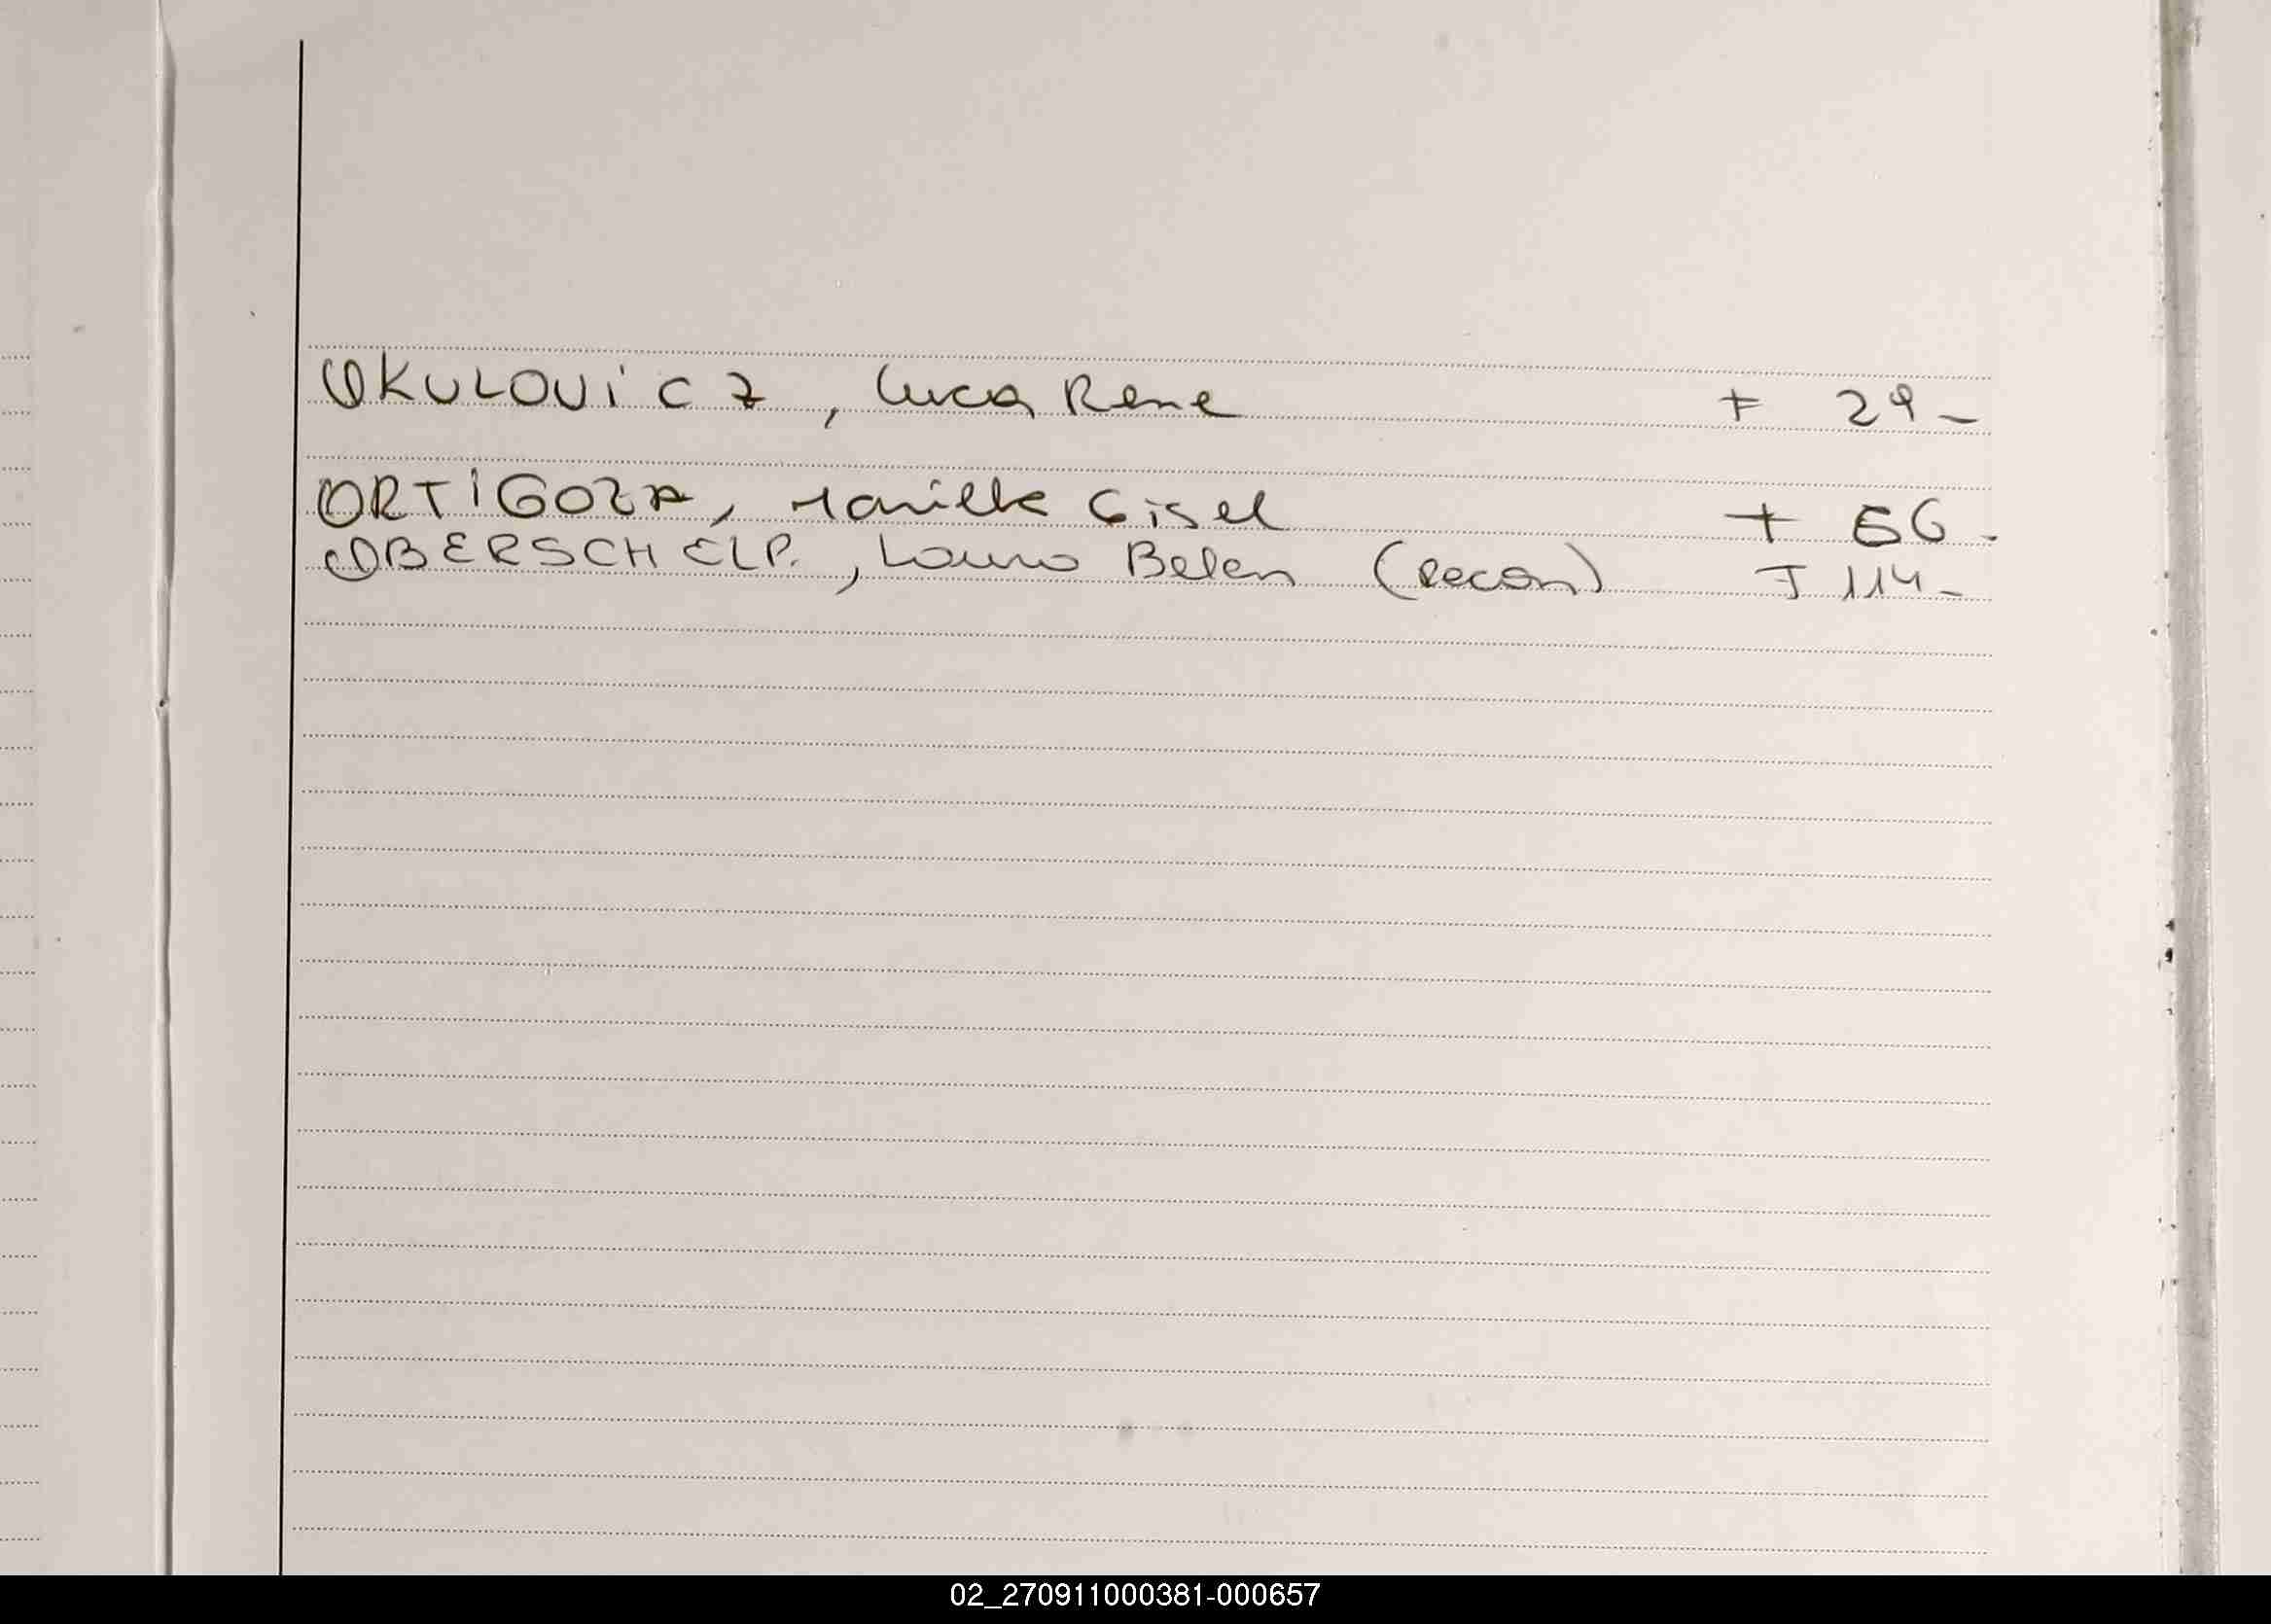 OKULOVICZ, Luca Rene + 29-
ORTIGOZA, Gisel + 56-
OBERSCHELP., Laura Belen (Recon) J 114-
02_270911000381-000657